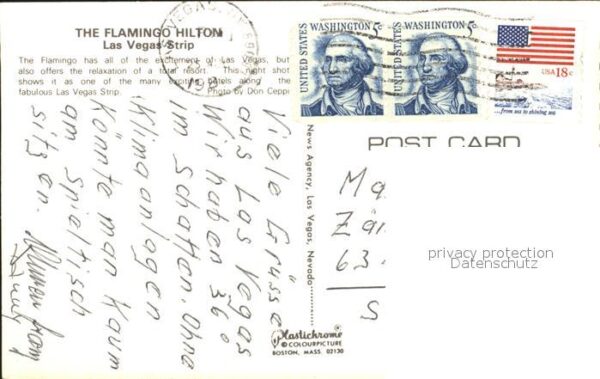 THE FLAMINGO HILTON
Las Vegas Strip
The Flamingo has all of the excitement of Las Vegas, but
also offers the relaxation of a total resort. This night shot
shows it as one of the many exciting hotels along the
fabulous Las Vegas Strip. Photo by Don Ceppi
UNITED STATES
WASHINGTON 5c
UNITED STATES
WASHINGTON 5c
USA 18c
...from sea to shining sea
POST CARD
Viele Grüsse
aus Las Vegas
Wir haben 36°
im Schatten. Ohne
Klimaanlagen
könnte man kaum
am Spieltisch
sitzen.
News Agency, Las Vegas, Nevada
Ma
Zä
63
S
privacy protection
Datenschutz
Plastichrome®
© COLOURPICTURE
BOSTON, MASS. 02130